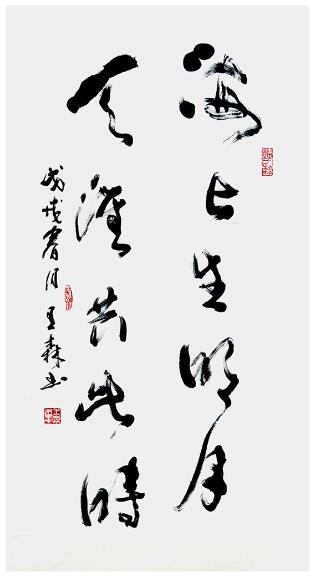 海上生明月
天涯共此時
戊戌春月王森书